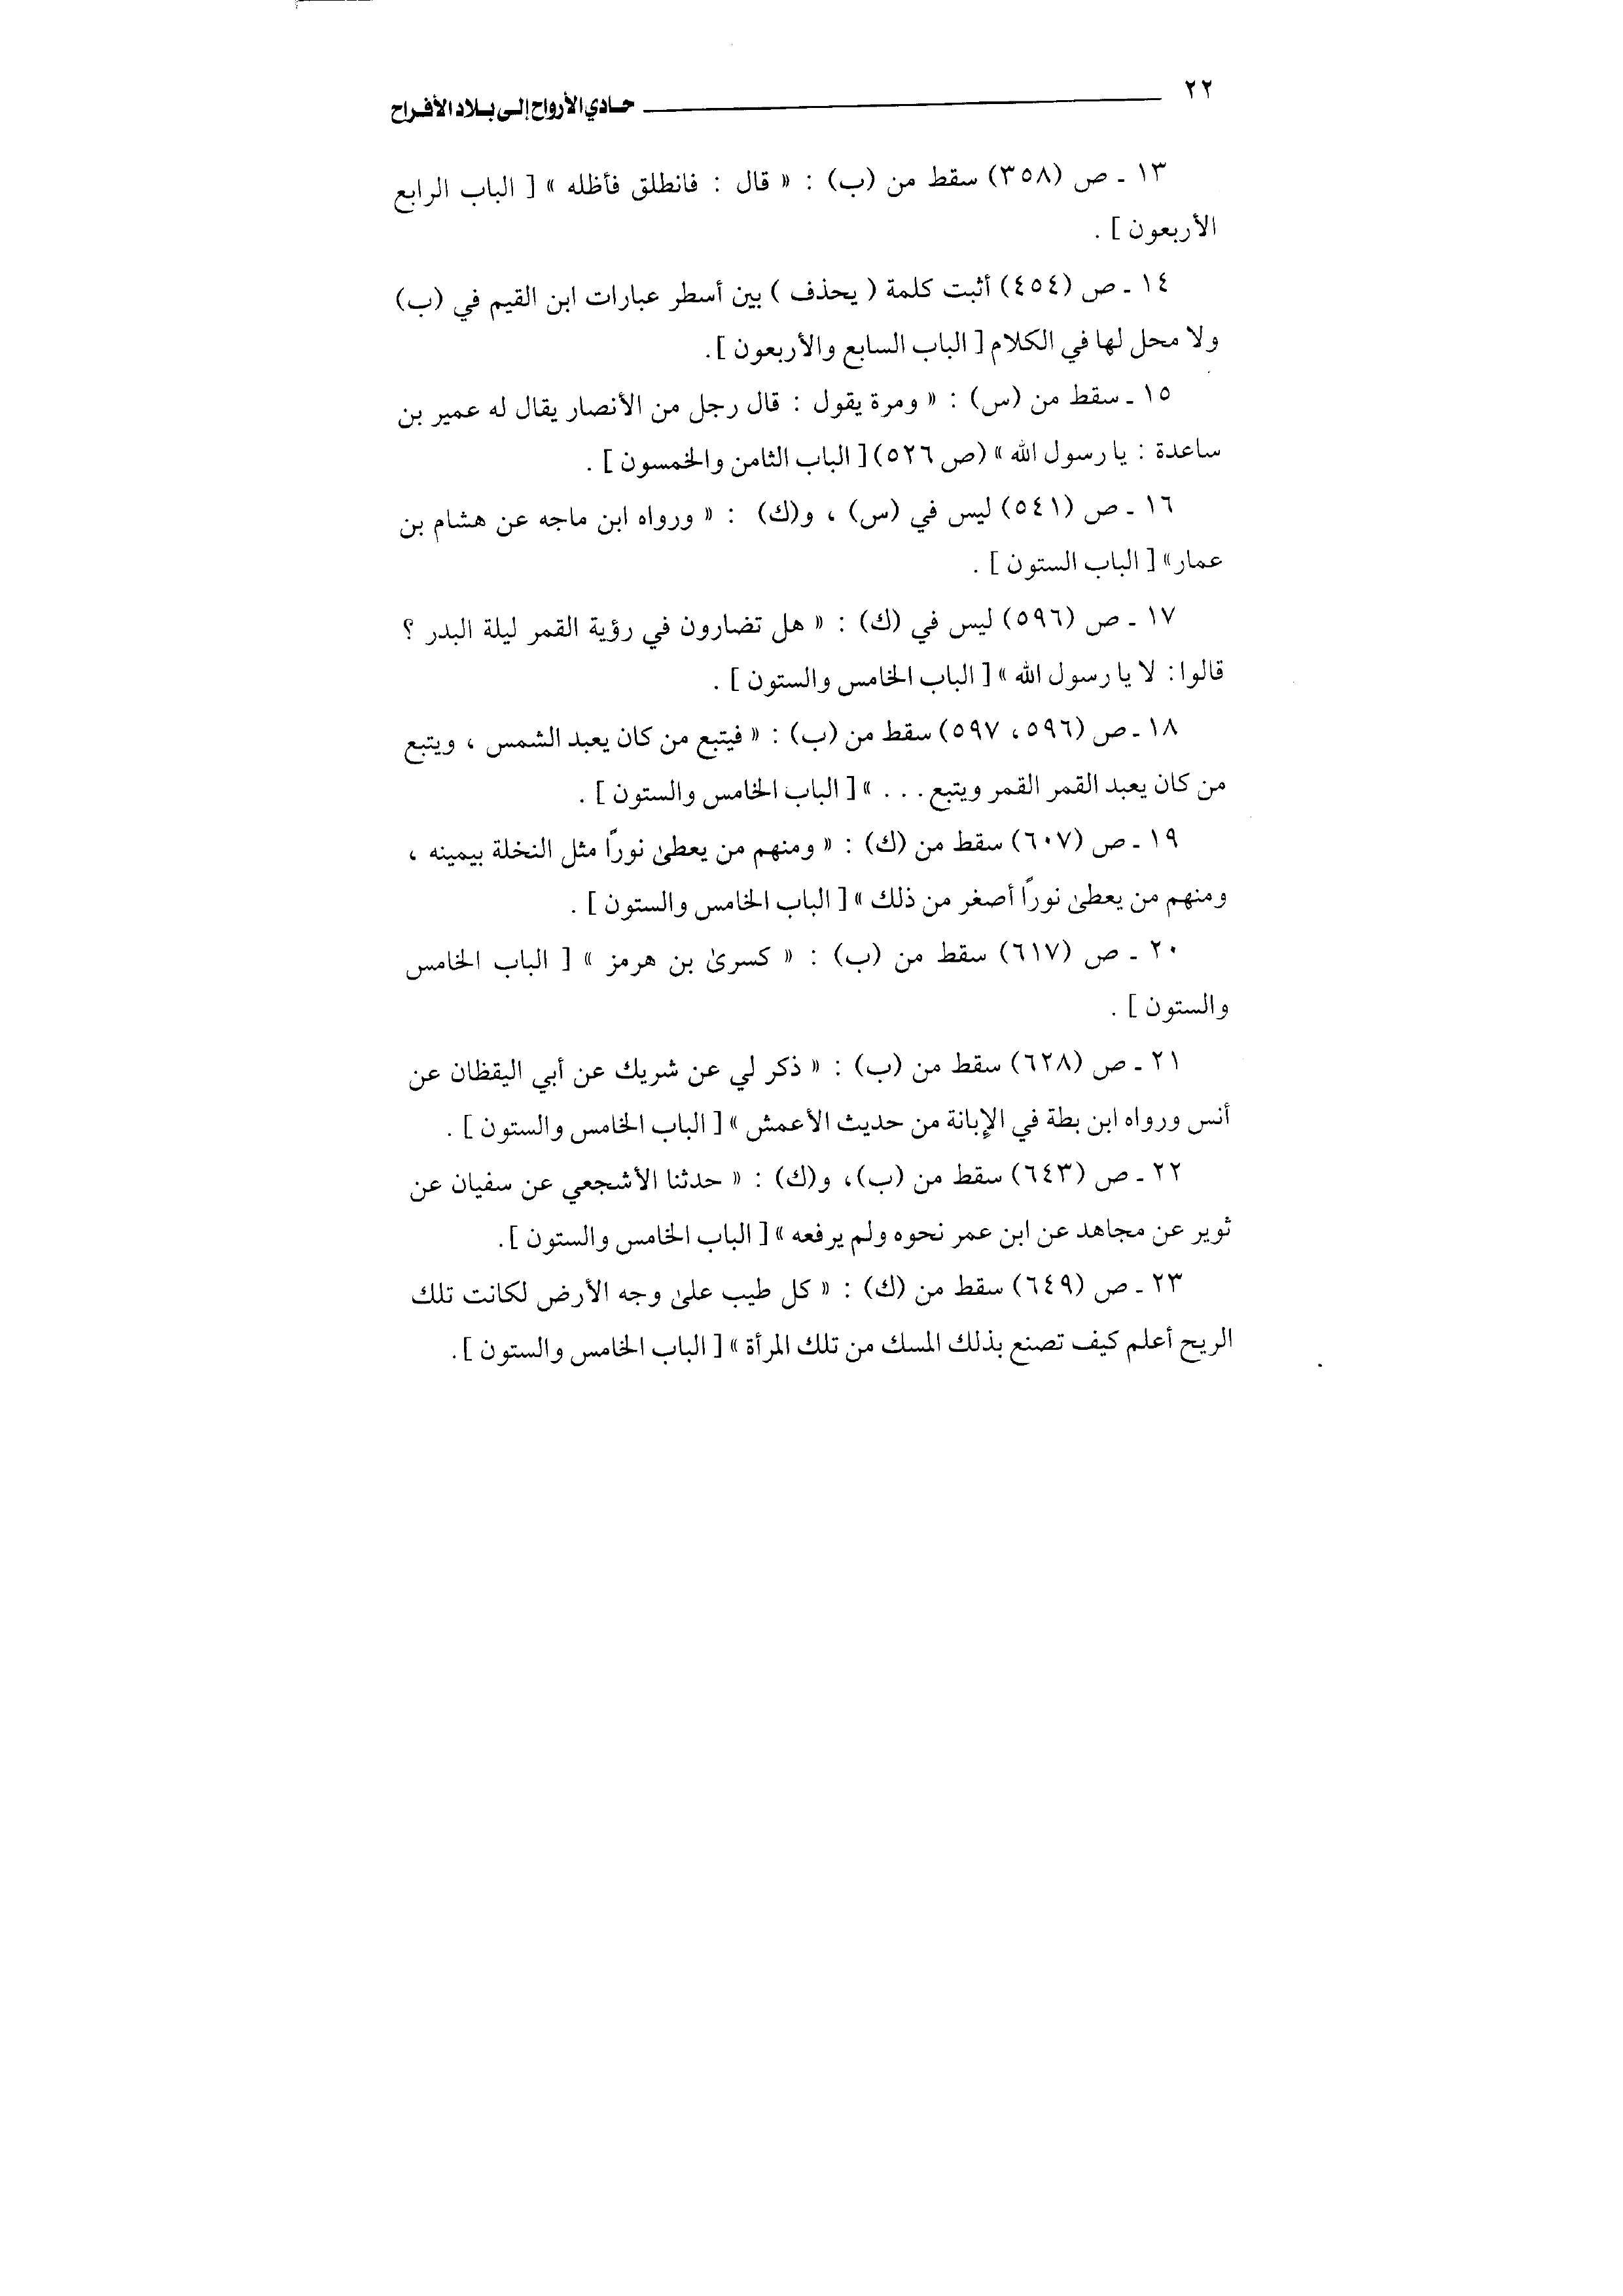 ٢٢ حادي الأرواح إلى بلاد الأفراح
١٣ ـ ص (٣٥٨) سقط من (ب) : « قال : فانطلق فأظله » [ الباب الرابع
الأربعون ] .
١٤ ـ ص (٤٥٤) أثبت كلمة ( يحذف ) بين أسطر عبارات ابن القيم في (ب)
ولا محل لها في الكلام [ الباب السابع والأربعون ].
١٥ ـ سقط من (س) : « ومرة يقول : قال رجل من الأنصار يقال له عمير بن
ساعدة : يا رسول الله » (ص ٥٢٦) [ الباب الثامن والخمسون ] .
١٦ ـ ص (٥٤١) ليس في (س) ، و(ك) : « ورواه ابن ماجه عن هشام بن
عمار» [ الباب الستون ] .
١٧ ـ ص (٥٩٦) ليس في (ك) : « هل تضارون في رؤية القمر ليلة البدر ؟
قالوا: لا يا رسول الله » [ الباب الخامس والستون ] .
١٨ ـ ص (٥٩٦ ، ٥٩٧) سقط من (ب) : « فيتبع من كان يعبد الشمس ، ويتبع
من كان يعبد القمر القمر ويتبع . . . » [ الباب الخامس والستون ] .
١٩ ـ ص (٦٠٧) سقط من (ك) : « ومنهم من يعطىٰ نورًا مثل النخلة بيمينه ،
ومنهم من يعطىٰ نورًا أصغر من ذلك » [ الباب الخامس والستون ] .
٢٠ ـ ص (٦١٧) سقط من (ب) : « كسرىٰ بن هرمز » [ الباب الخامس
والستون ] .
٢١ ـ ص (٦٢٨) سقط من (ب) : « ذكر لي عن شريك عن أبي اليقظان عن
أنس ورواه ابن بطة في الإبانة من حديث الأعمش » [ الباب الخامس والستون ] .
٢٢ ـ ص (٦٤٣) سقط من (ب)، و(ك) : « حدثنا الأشجعي عن سفيان عن
ثوير عن مجاهد عن ابن عمر نحوه ولم يرفعه » [ الباب الخامس والستون ].
٢٣ ـ ص (٦٤٩) سقط من (ك) : « كل طيب علىٰ وجه الأرض لكانت تلك
الريح أعلم كيف تصنع بذلك المسك من تلك المرأة » [ الباب الخامس والستون ].